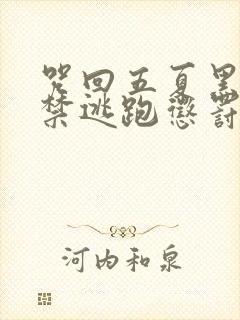 咒回五夏黑
禁逃跑惩討
河内和泉